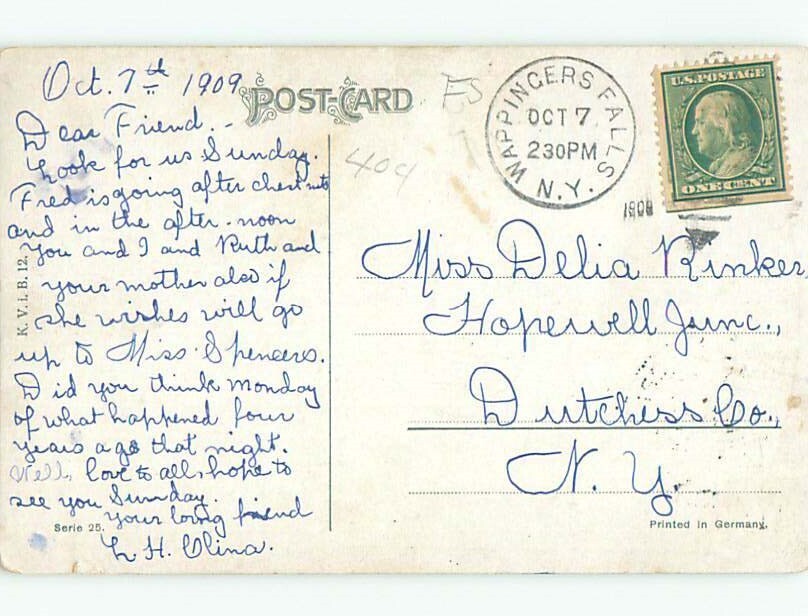 Oct. 7th 1909
POST-CARD
ES
409
WAPPINGERS FALLS
OCT 7
230PM
N.Y.
1909
U.S. POSTAGE
ONE CENT
Dear Friend. -
Look for us Sunday.
Fred is going after chestnuts
and in the after-noon
you and I and Ruth and
your mother also if
she wishes will go
up to Miss Spencers.
Did you think Monday
of what happened four
years ago that night.
Well, love to all, hope to
see you Sunday.
Your loving friend
L. H. Clina.
K. V. i. B. 12.
Serie 25.
Miss Delia Rinker
Hopewell Junc.,
Dutchess Co.,
N. Y.
Printed in Germany.